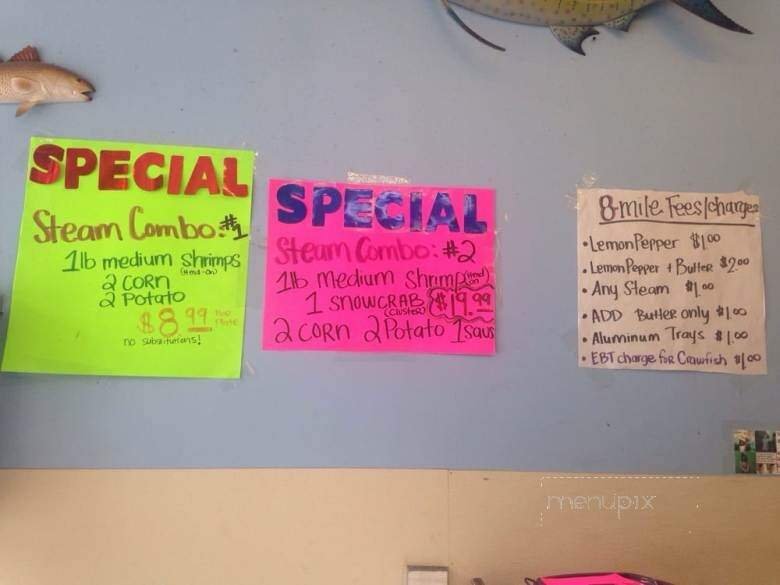 SPECIAL
Steam Combo: #1
1lb medium shrimps
(Head-on)
2 CORN
2 Potato
$8.99 Per Plate
no substitutions!
SPECIAL
Steam Combo: #2
1lb medium shrimp (Head on)
1 SNOWCRAB $19.99
(CLUSTER)
2 CORN 2 Potato 1 saus
8-mile Fees/charges
• Lemon Pepper $1.00
• Lemon Pepper + Butter $2.00
• Any Steam $1.00
• ADD Butter only $1.00
• Aluminum Trays $1.00
• EBT charge for Crawfish $1.00
menupix